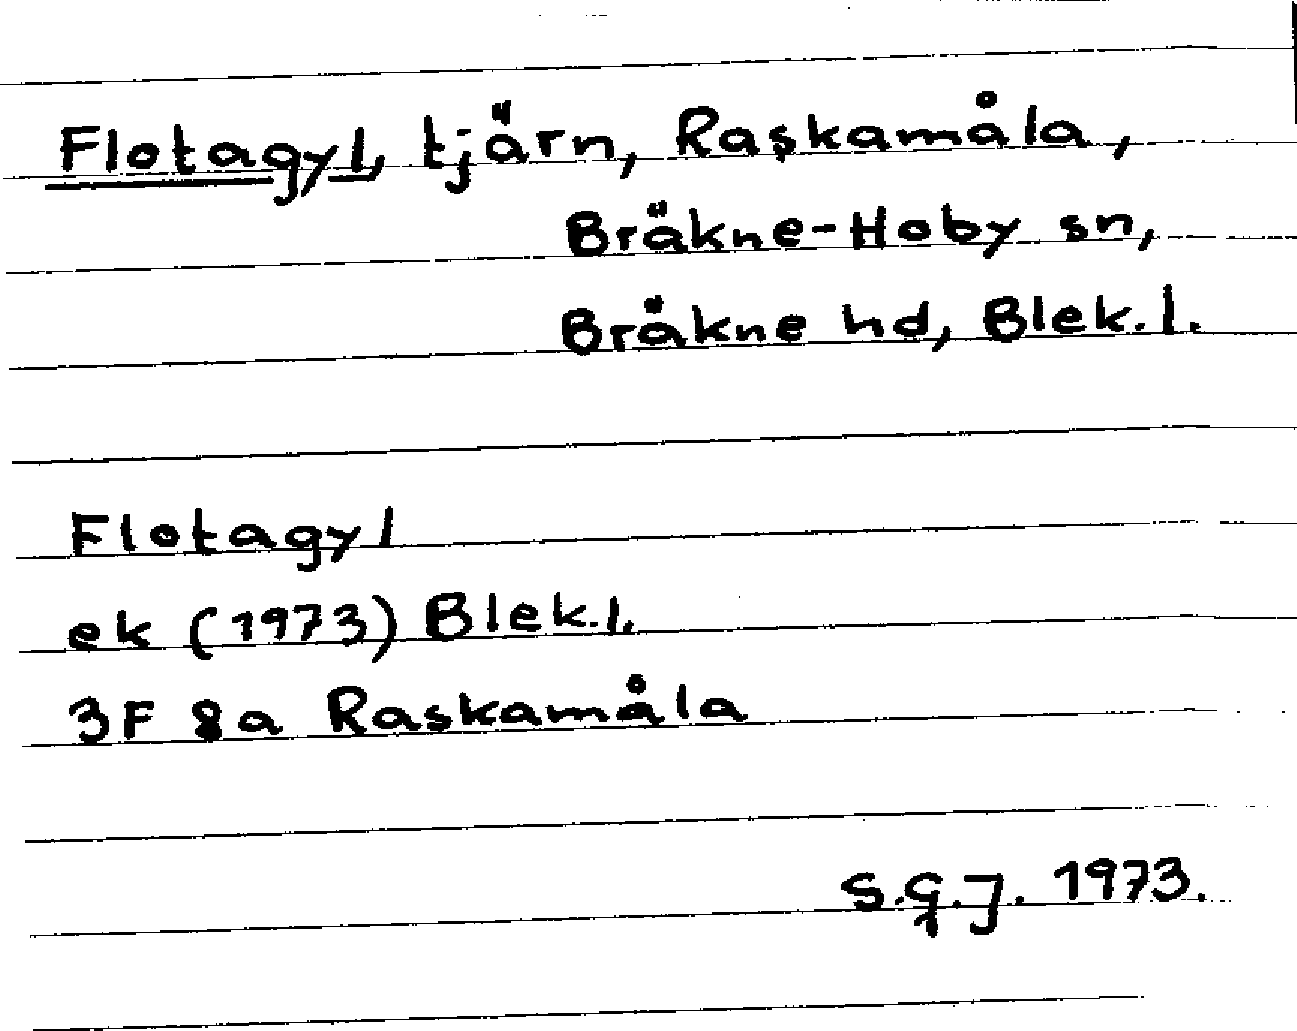 Flotagyl, tjärn, Raskamåla,
Bräkne-Hoby sn,
Bräkne hd, Blek. l.
Flotagyl
ek (1973) Blek. l.
3F 8a Raskamåla
S.G.J. 1973.